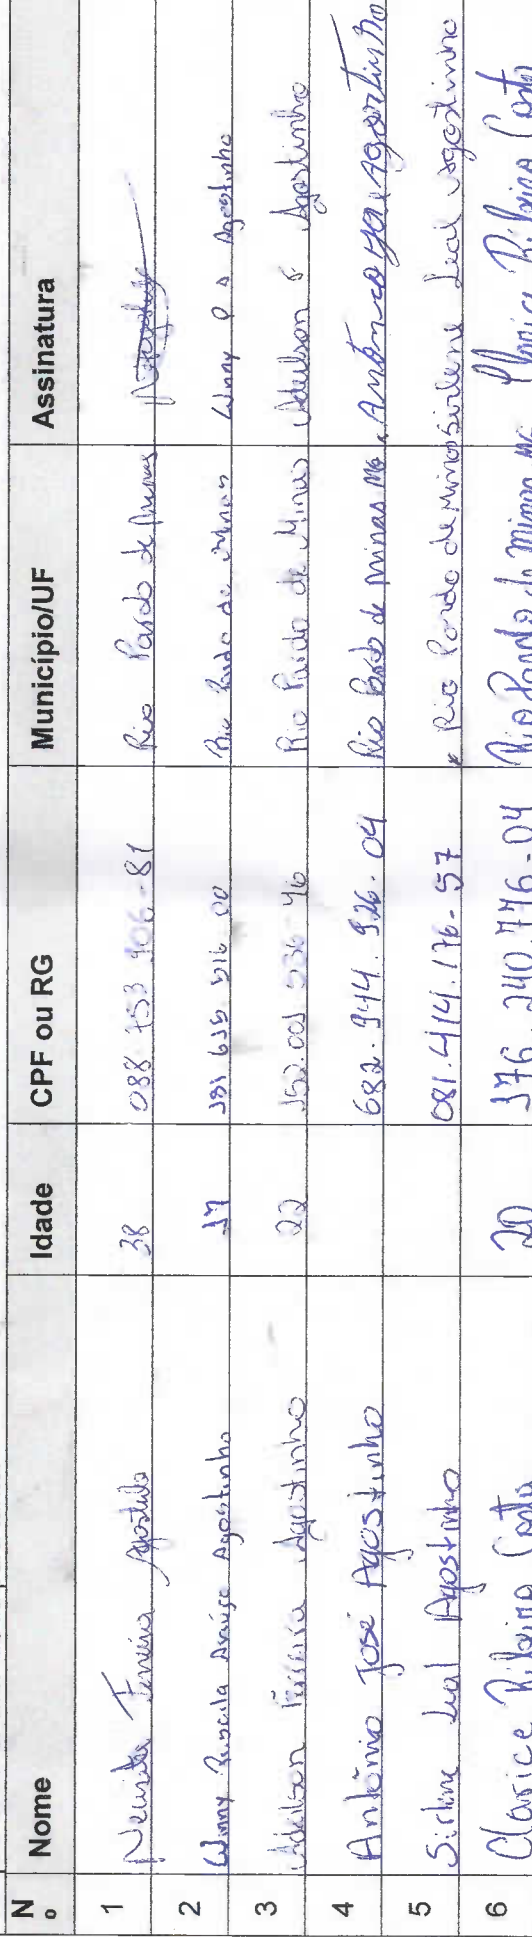 N° Nome Idade CPF ou RG Município/UF Assinatura
1 Ferreira 38 088 753 906-81 Rio Pardo de Minas
2 Winny Araújo Agostinho 17 Rio Pardo de Minas Winny P A Agostinho
3 Adeilson Ferreira Agostinho 22 Rio Pardo de Minas Adeilson F Agostinho
4 Antônio José Agostinho 682.944.926.04 Rio Pardo de Minas MG Antônio José Agostinho
5 Sirlene Leal Agostinho 081.414.176-57 Rio Pardo de Minas Sirlene Leal Agostinho
6 Clarice Ribeiro Costa 20 176.240.776-04 Rio Pardo de Minas MG Clarice Ribeiro Costa